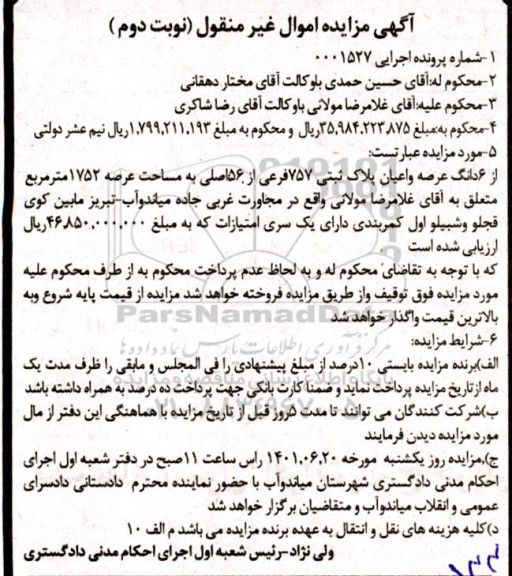 آگهی مزایده اموال غیر منقول (نوبت دوم)
۱-شماره پرونده اجرایی ۰۰۰۱۵۲۷
۲-محکوم له:آقای حسین حمدی باوکالت آقای مختار دهقانی
۳-محکوم علیه:آقای غلامرضا مولائی باوکالت آقای رضا شاکری
۴-محکوم به:مبلغ ۳۵,۹۸۴,۲۲۳,۸۷۵ریال و محکوم به مبلغ ۱,۷۹۹,۲۱۱,۱۹۳ریال نیم عشر دولتی
۵-مورد مزایده عبارتست:
از ۶دانگ عرصه واعیان پلاک ثبتی ۷۵۷فرعی از ۵۶اصلی به مساحت عرصه ۱۷۵۲مترمربع
متعلق به آقای غلامرضا مولائی واقع در مجاورت غربی جاده میاندوآب-تبریز مابین کوی
قجلو وشبیلو اول کمربندی دارای یک سری امتیازات که به مبلغ ۴۶,۸۵۰,۰۰۰,۰۰۰ریال
ارزیابی شده است
که با توجه به تقاضای محکوم له و به لحاظ عدم پرداخت محکوم به از طرف محکوم علیه
مورد مزایده فوق توقیف واز طریق مزایده فروخته خواهد شد مزایده از قیمت پایه شروع وبه
بالاترین قیمت واگذار خواهد شد
ParsNamadData
۶-شرایط مزایده:
الف)برنده مزایده بایستی ۱۰درصد از مبلغ پیشنهادی را فی المجلس و مابقی را ظرف مدت یک
ماه ازتاریخ مزایده پرداخت نماید و ضمنا کارت بانکی جهت پرداخت ده درصد به همراه داشته باشد
ب)شرکت کنندگان می توانند تا مدت ۵روز قبل از تاریخ مزایده با هماهنگی این دفتر از مال
مورد مزایده دیدن فرمایند
ج)مزایده روز یکشنبه مورخه ۱۴۰۱.۰۶.۲۰ راس ساعت ۱۱صبح در دفتر شعبه اول اجرای
احکام مدنی دادگستری شهرستان میاندوآب با حضور نماینده محترم دادستانی دادسرای
عمومی و انقلاب میاندوآب و متقاضیان برگزار خواهد شد
د)کلیه هزینه های نقل و انتقال به عهده برنده مزایده می باشد م الف ۱۰
ولی نژاد-رئیس شعبه اول اجرای احکام مدنی دادگستری